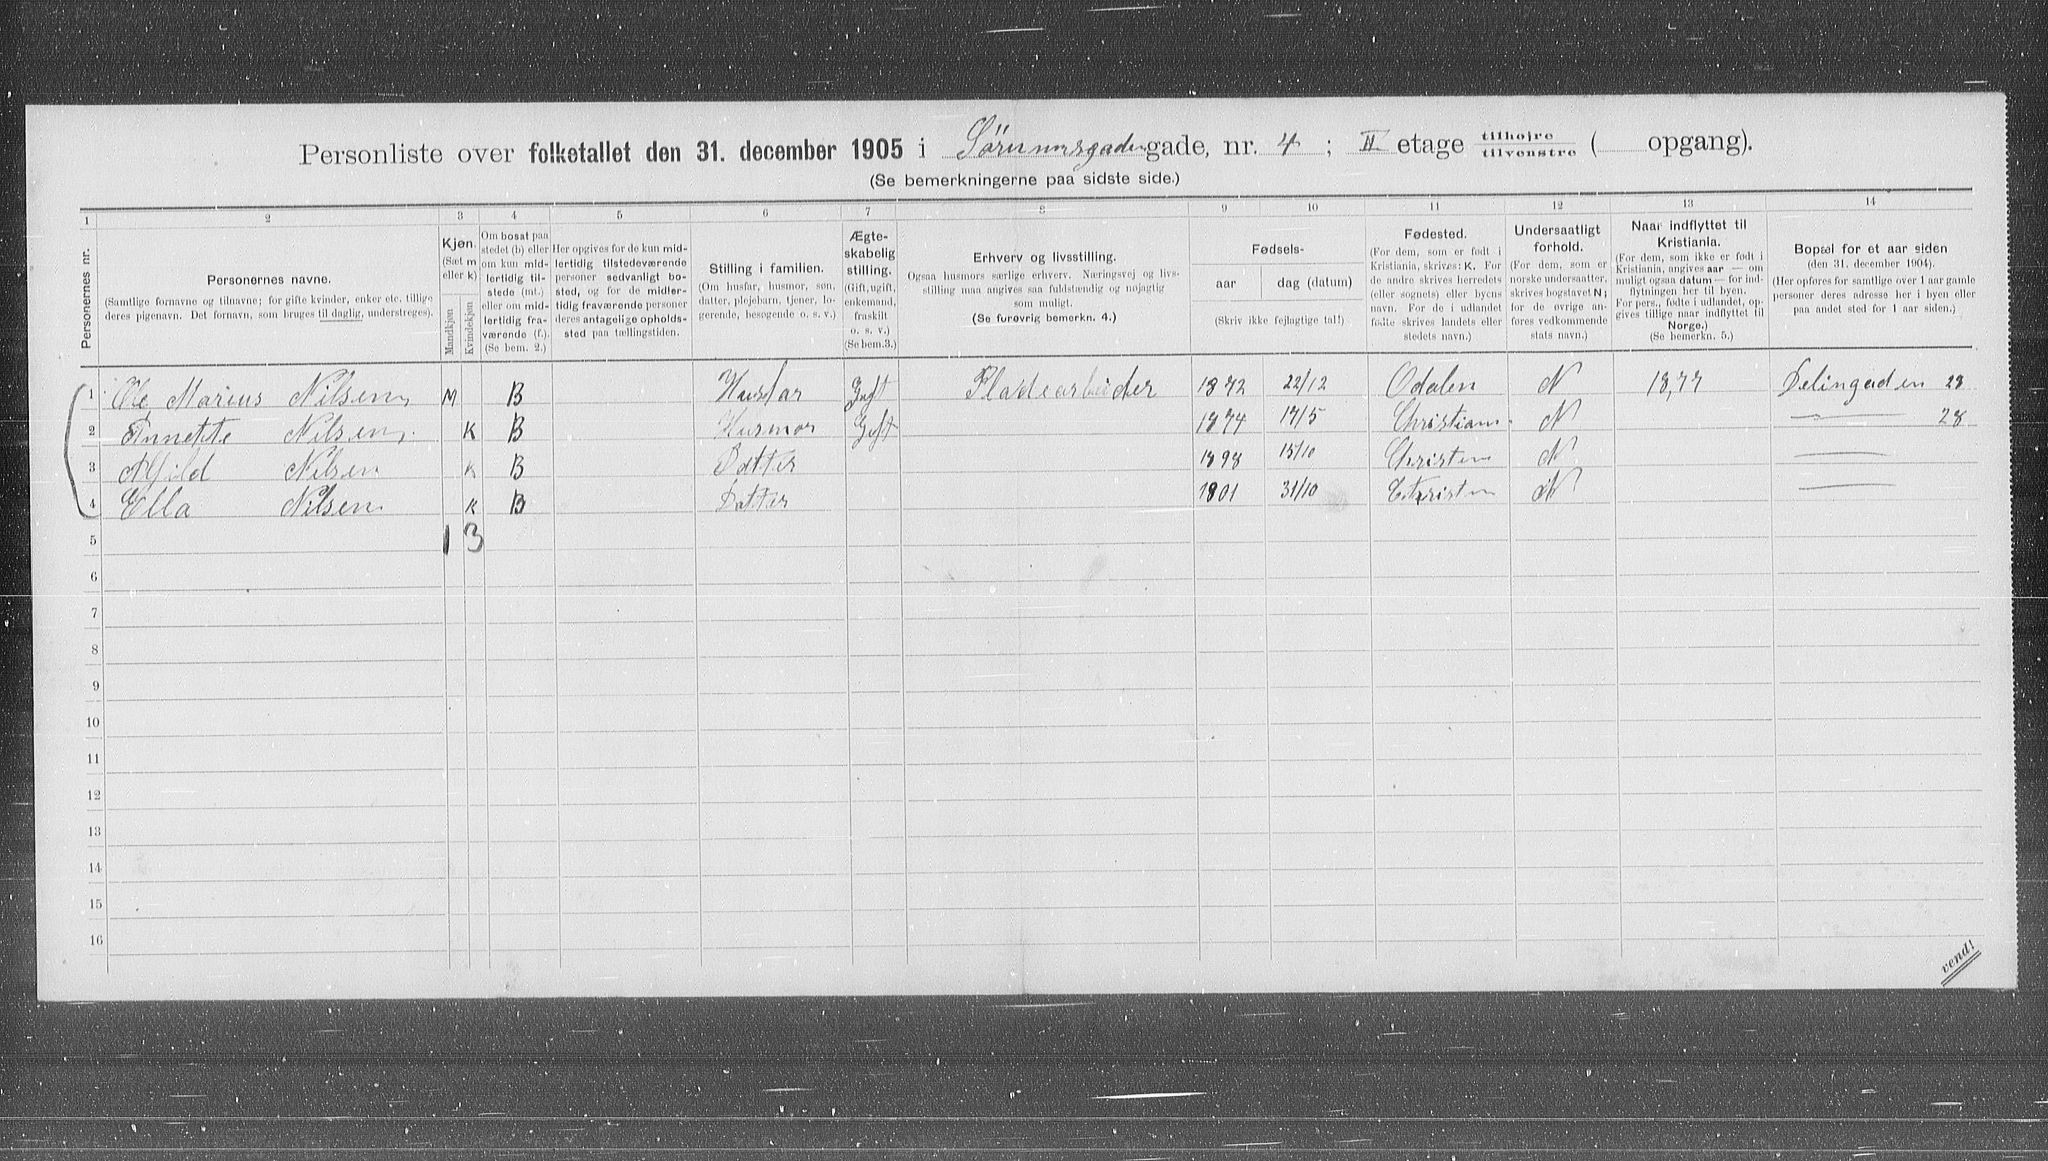 Personliste over folketallet den 31. december 1905 i Sørumsgaden gade, nr. 4 ; II etage tilhøjre / tilvenstre ( opgang).
(Se bemerkningerne paa sidste side.)
1 2 3 4 5 6 7 8 9 10 11 12 13 14
Personernes nr.
Personernes navne.
(Samtlige fornavne og tilnavne; for gifte kvinder, enker etc. tillige
deres pigenavn. Det fornavn, som bruges til daglig, understreges).
Kjøn.
(Sæt m
eller k)
Mandkjøn
Kvindekjøn
Om bosat paa
stedet (b) eller
om kun mid-
lertidig til-
stede (mt.)
eller om mid-
lertidig fra-
værende (f.).
(Se bem. 2.)
Her opgives for de kun mid-
lertidig tilstedeværende
personer sedvanligt bo-
sted, og for de midler-
tidig fraværende personer
deres antagelige opholds-
sted paa tællingstiden.
Stilling i familien.
(Om husfar, husmor, søn,
datter, plejebarn, tjener, lo-
gerende, besøgende o. s. v.)
Ægte-
skabelig
stilling.
(Gift, ugift,
enkemand,
fraskilt
o. s. v.)
(Se bem. 3.)
Erhverv og livsstilling.
Ogsaa husmors særlige erhverv. Næringsvej og livs-
stilling maa angives saa fuldstændig og nøjagtig
som muligt.
(Se forøvrig bemerkn. 4.)
Fødsels-
aar
dag (datum)
(Skriv ikke fejlagtige tal!)
Fødested.
(For dem, som er født i
Kristiania, skrives: K. For
de andre skrives herredets
(eller sognets) eller byens
navn. For de i udlandet
fødte skrives landets eller
stedets navn.)
Undersaatligt
forhold.
(For dem, som er
norske undersaatter,
skrives bogstavet N;
for de øvrige an-
føres vedkommende
stats navn.)
Naar indflyttet til
Kristiania.
(For dem, som ikke er født i
Kristiania, angives aar — om
muligt ogsaa datum — for ind-
flytningen her til byen.
For pers., fødte i udlandet, op-
gives tillige naar indflyttet til
Norge.)
(Se bemerkn. 5.)
Bopæl for et aar siden
(den 31. december 1904).
(Her opføres for samtlige over 1 aar gamle
personer deres adresse her i byen eller
paa andet sted for 1 aar siden.)
1 Ole Marius Nilsen M B Husfar Gift Pladearbeider 1872 22/12 Odalen N 1877 Delingaden 28
2 Annette Nilsen K B Husmor Gift 1874 17/5 Christian N — 28
3 Alfild Nilsen K B Datter 1898 15/10 Christen N —
4 Ella Nilsen K B Datter 1901 31/10 Christen N —
5 1 3
6
7
8
9
10
11
12
13
14
15
16
vend!